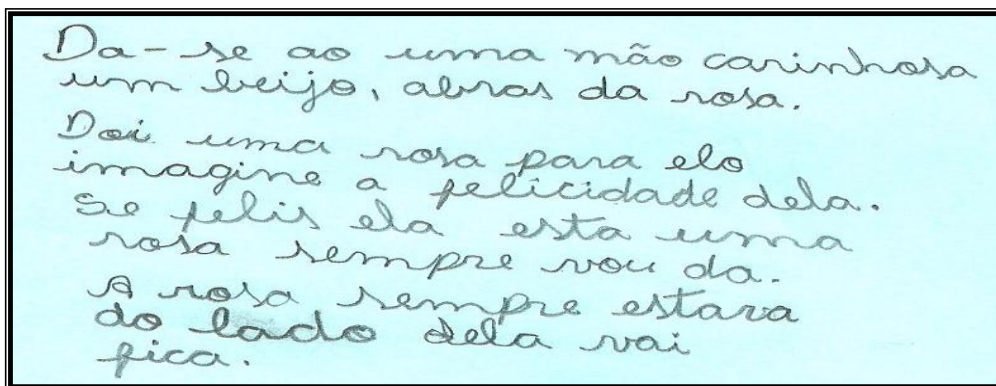 Da-se ao uma mão carinhosa
um beijo, abras da rosa.
Doi uma rosa para elo
imagine a felicidade dela.
Se felis ela esta uma
rosa sempre vou da.
A rosa sempre estara
do lado dela vai
fica.